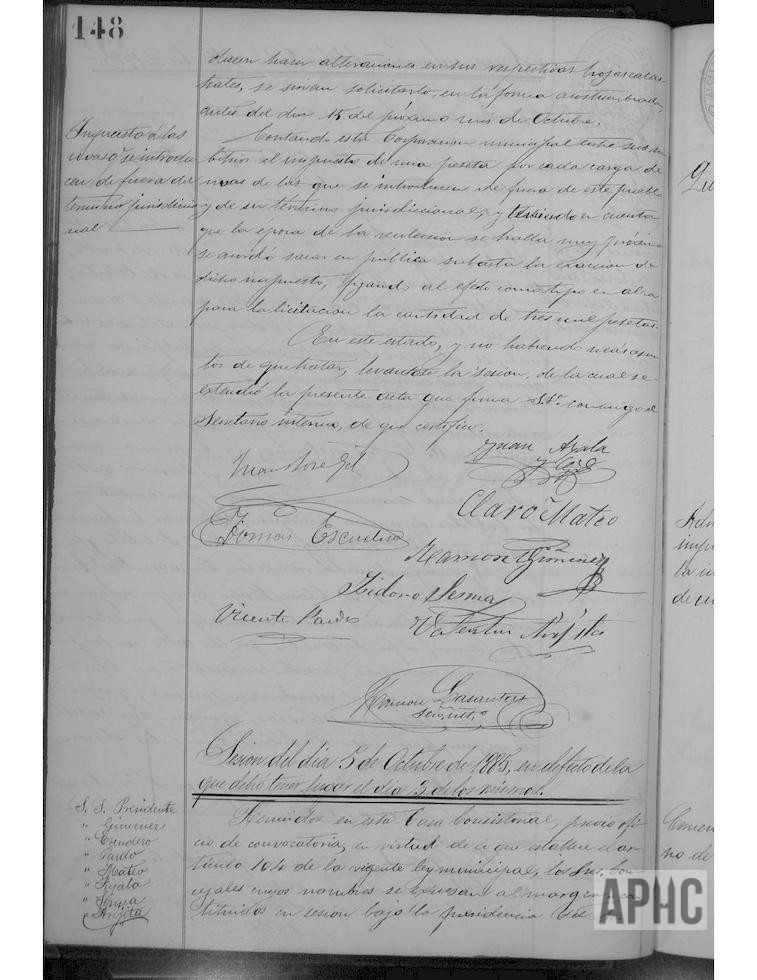 148
dseen hacer alteraciones en sus respectivas hojas catas-
trales, se sirvan solicitarlo, en la forma acostumbrada,
antes del dia 15 del próximo mes de Octubre.
Impuesto á las
uvas q. se introdu
cen de fuera del
termino jurisdiccio
nal
Contando esta Corporacion municipal entre sus ar-
bitrios el impuesto de una peseta por cada carga de
uvas de las que se introducen de fuera de este pueblo
y de su termino jurisdiccional; y teniendo en cuenta
que la época de la recoleccion se halla muy próxima
se acordó sacar en publica subasta la exaccion de
dicho impuesto, fijando al efecto como tipo en alza
para la licitacion la cantidad de tres mil pesetas.
En este estado, y no habiendo mas asun-
tos de que tratar, levantose la sesion, de la cual se
extendió la presente acta que firma S.Sª. conmigo el
Secretario interino, de que certifico.
Juan José Gil
Juan Ayala
y Gil
Claro Mateo
Tomás Escudero
Ramon Gimenez
Isidoro Serma
Vicente Pardo
Valentin Arijita
Ramon Lasantas
Sesion del dia 5 de Octubre de 1885, en defecto de la
que debió tener lugar el dia 3 de los mismos.
S. S. Presidente
" Gimenez
" Escudero
" Pardo
" Mateo
" Ayala
" Serma
" Arijita
Reunidos en esta Casa Consistorial, previo ofi-
cio de convocatoria, en virtud de lo que establece el ar-
tículo 104 de la vigente ley municipal, los Sres. Con-
cejales cuyos nombres se expresan al margen, y cons-
tituidos en sesion bajo la presidencia del
APHC